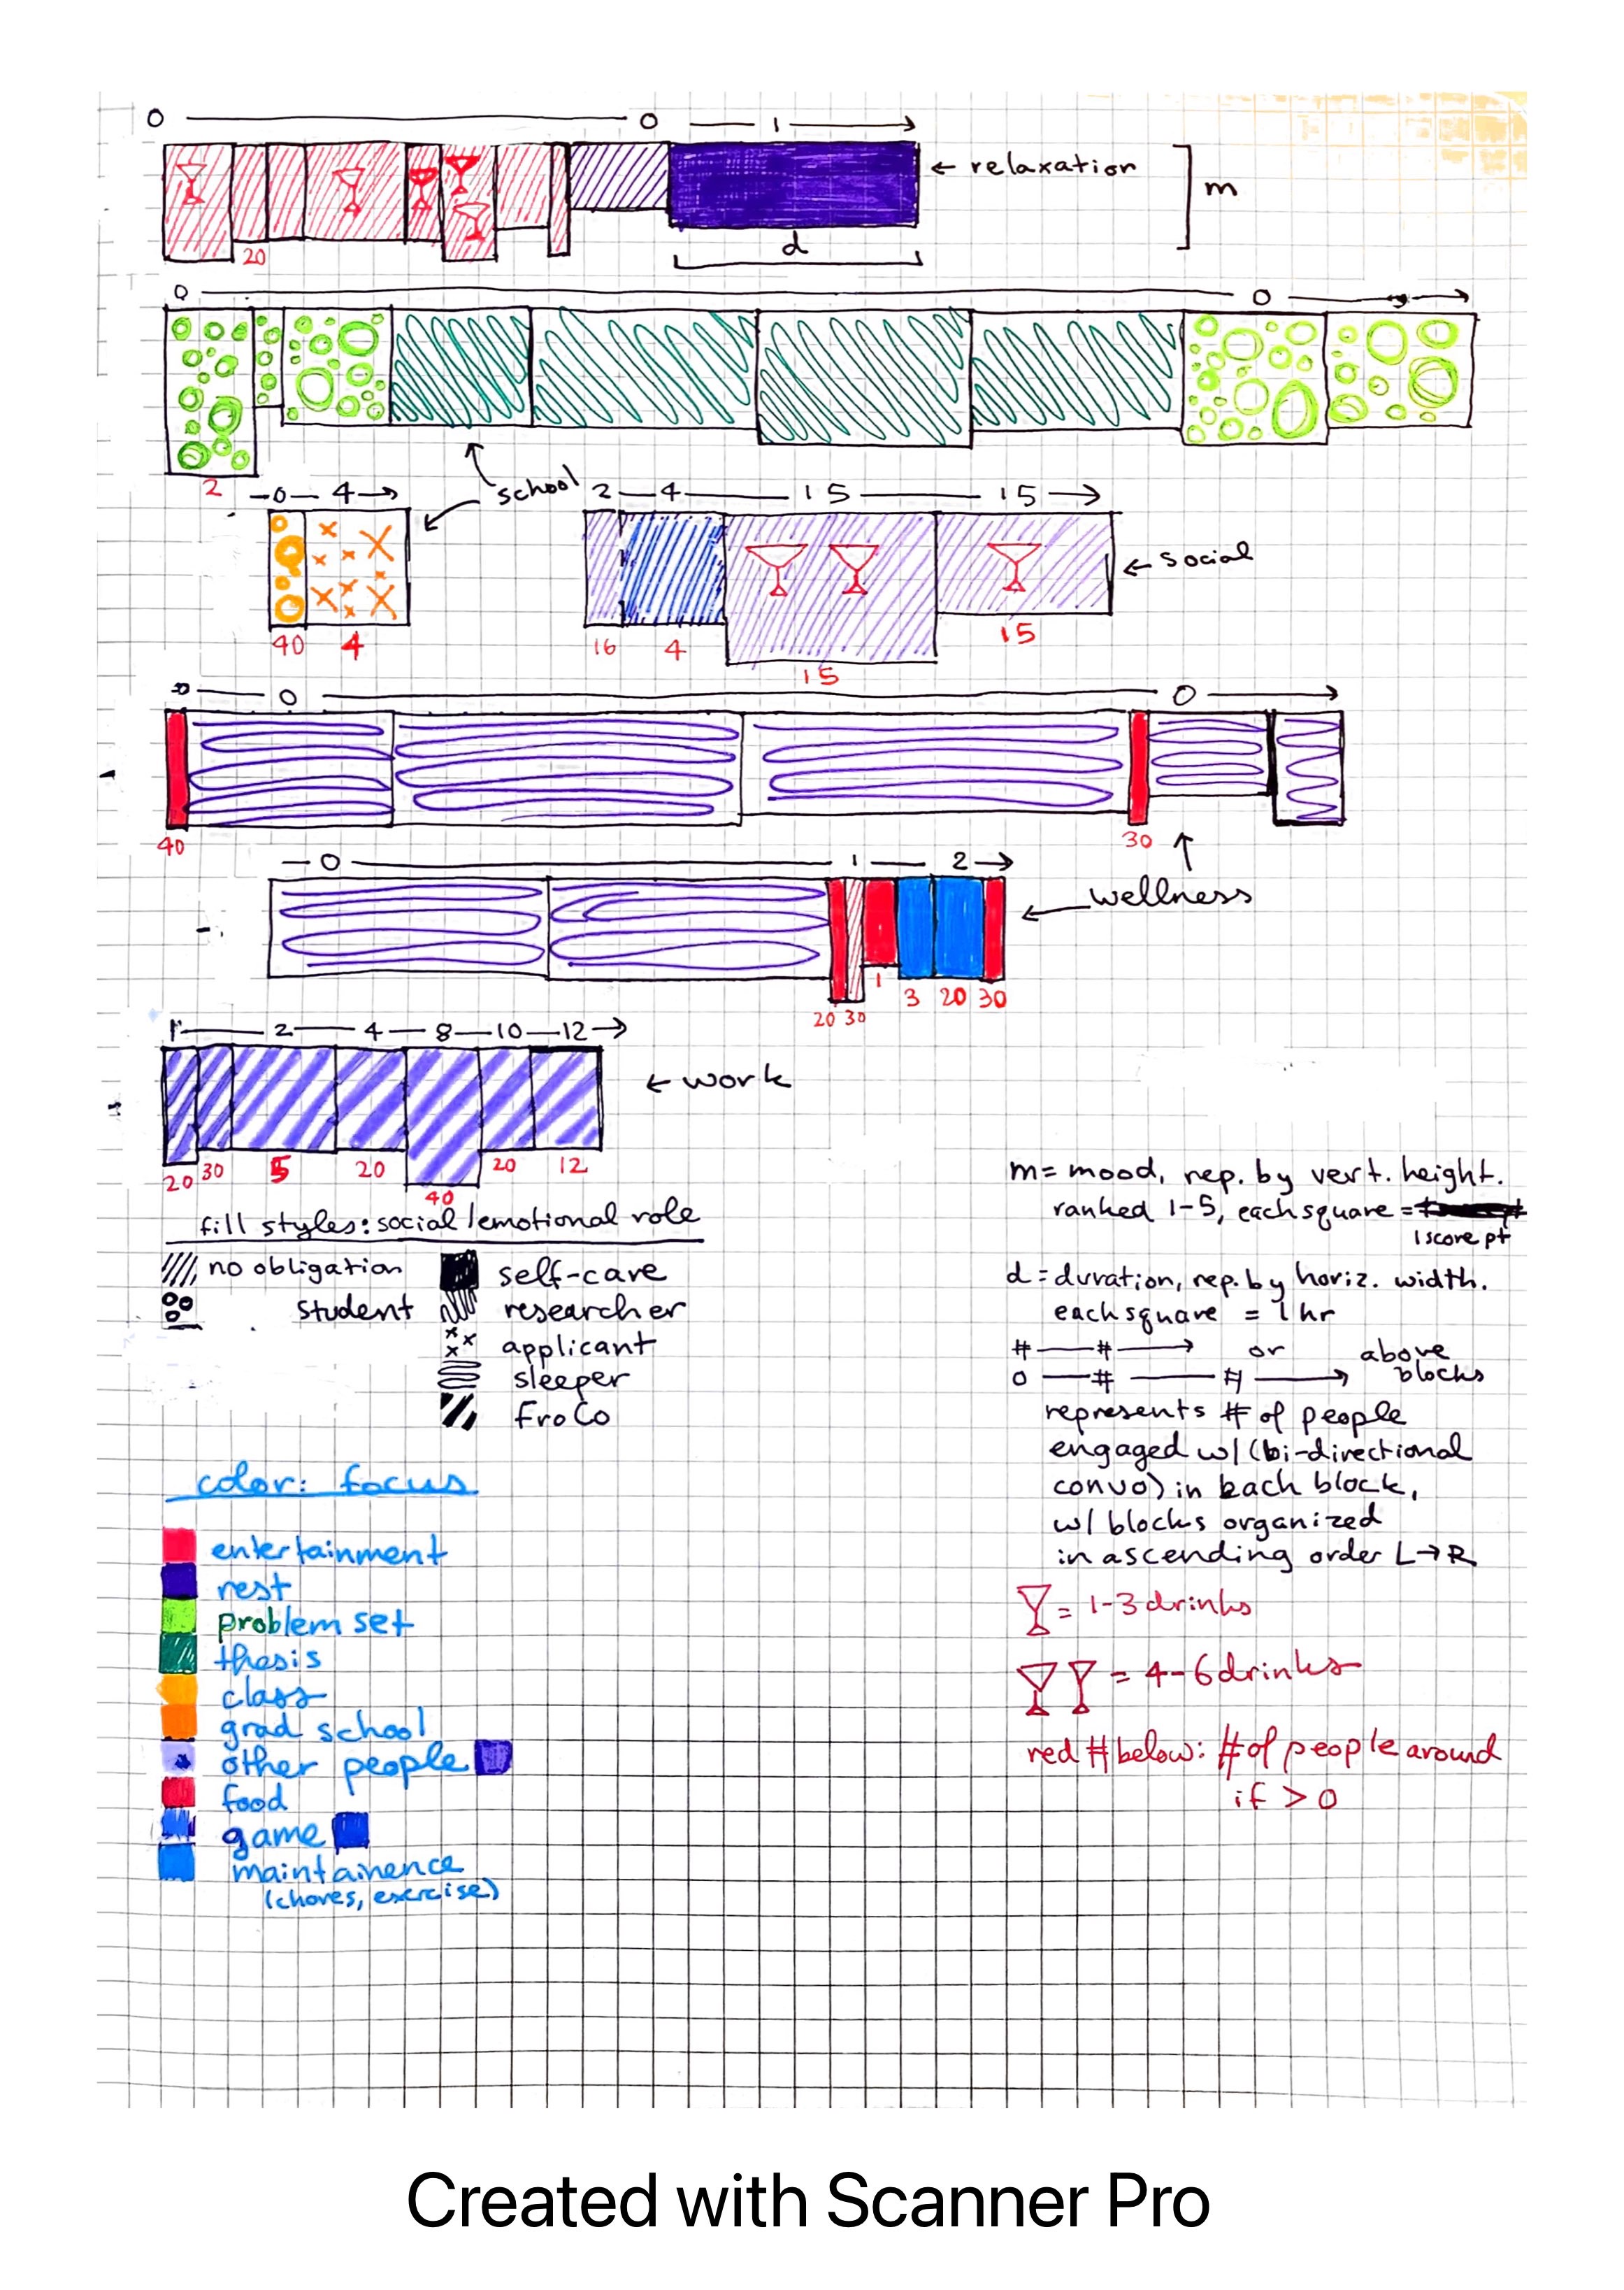 0 0 1
← relaxation
m
20
d
0 0
2
0 4
school
2 4 15 15
← social
40 4
16 4 15 15
0 0
40 30
wellness
0 1 2
20 30 1 3 20 30
1 2 4 8 10 12
← work
20 30 5 20 40 20 12
fill styles: social/emotional role
no obligation
student
self-care
researcher
applicant
sleeper
FroCo
color: focus
entertainment
rest
problem set
thesis
class
grad school
other people
food
game
maintainence
(chores, exercise)
m = mood, rep. by vert. height.
ranked 1-5, each square =
1 score pt
d = duration, rep. by horiz. width.
each square = 1 hr
# — # → or above
0 — # — # → blocks
represents # of people
engaged w/ (bi-directional
convo) in each block,
w/ blocks organized
in ascending order L→R
= 1-3 drinks
= 4-6 drinks
red # below: # of people around
if > 0
Created with Scanner Pro